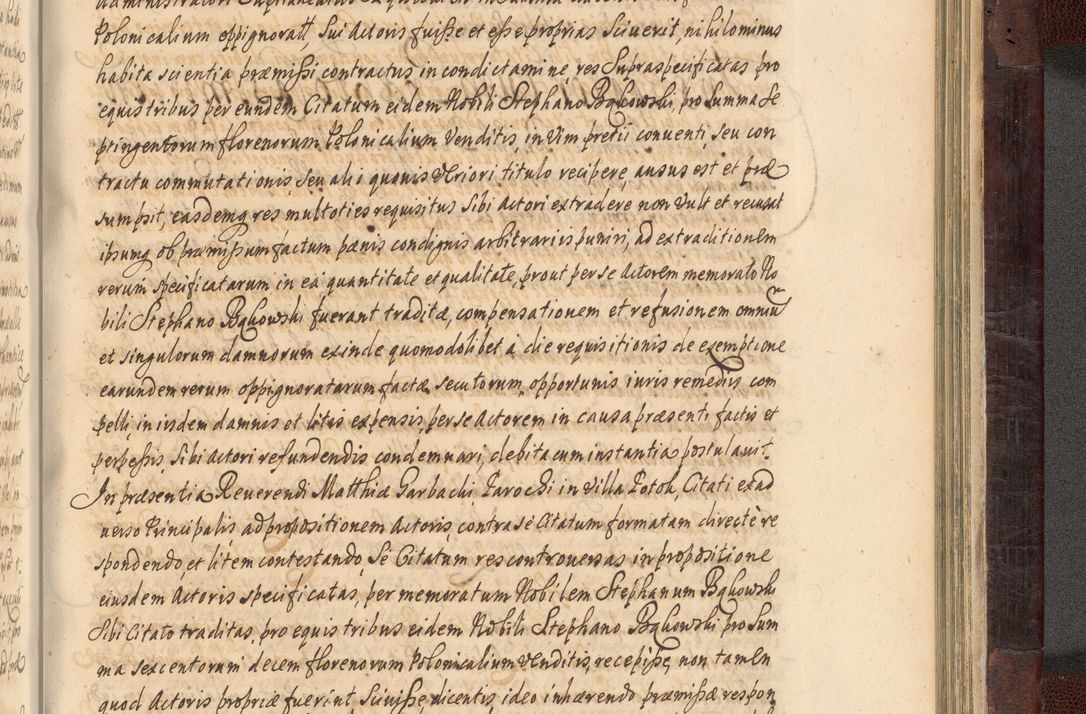 Polonicalium oppignoratt, Sui Actoris fuisse et esse proprias Sciverit, nihilominus
habita scientia præmissi contractus in condictamine, res Supraspecificatas pro
equis tribus per eundem Citatum eidem Nobili Stephano Bąkowski, pro Summa Se
ptingentorum florenorum Polonicalium Venditis, in Vim pretii conventi, seu con
tractu commutationis, seu alio quovis Veriori titulo recipere, ausus est et præ
sumpsit, easdemq res multoties requisitus Sibi Actori extradere non Vult et recusat
ipsumq ob præmissum factum pænis condignis arbitrariis puniri, ad extraditionem
rerum specificatarum in ea quantitate et qualitate, prout per se Actorem memorato No
bili Stephano Bąkowski fuerant traditæ, compensationem et refusionem omniũ
et singulorum damnorum exinde quomodolibet à die requisitionis de exemptione
earundem rerum oppignoratarum factæ secutorum, opportunis iuris remediis com
pelli, in iisdem damnis et litis expensis, per se Actorem in causa præsenti factis et
perpessis, Sibi Actori refundendis condemnari, debita cum instantia postulavit.
In præsentia Reverendi Matthiæ Garbachi Parochi in Villa Potok, Citati ex ad
verso Principalis, ad propositionem Actoris, contra sé Citatum formatam directè re
spondendo, et litem contestando, Sé Citatum res controversas in propositione
eiusdem Actoris specificatas, per memoratum Nobilem Stephanum Bąkowski
Sibi Citato traditas, pro equis tribus eidem Nobili Stephano Bąkowski pro Sum
ma sexcentorum decem florenorum Polonicalium Venditis, recepisse, non tamen
quod Actoris propriæ fuerint, Scivisse, dicentis, ideo inhærendo præmissæ respon